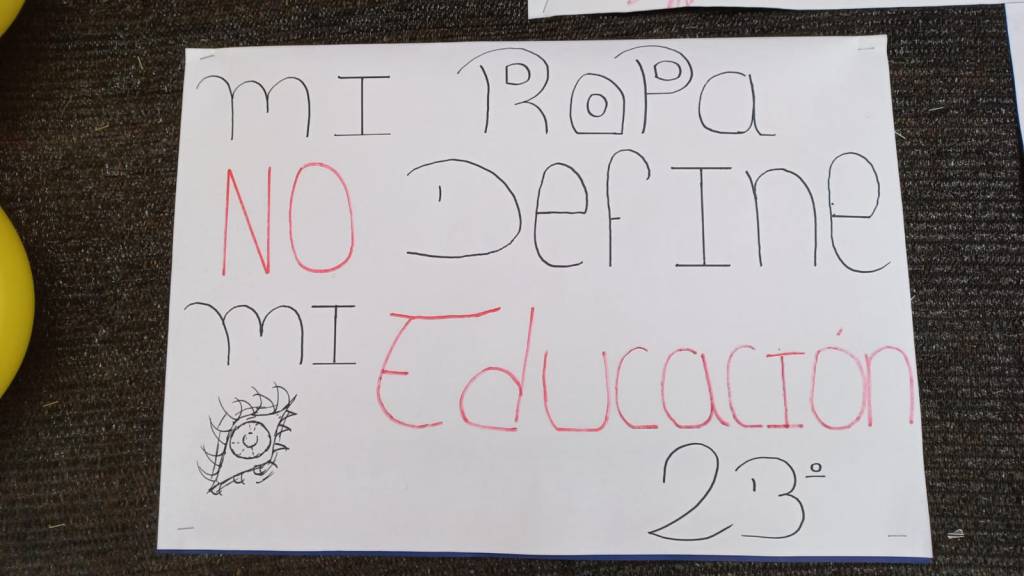 MI ROPa
NO DefINe
MI EducacIón
2B°